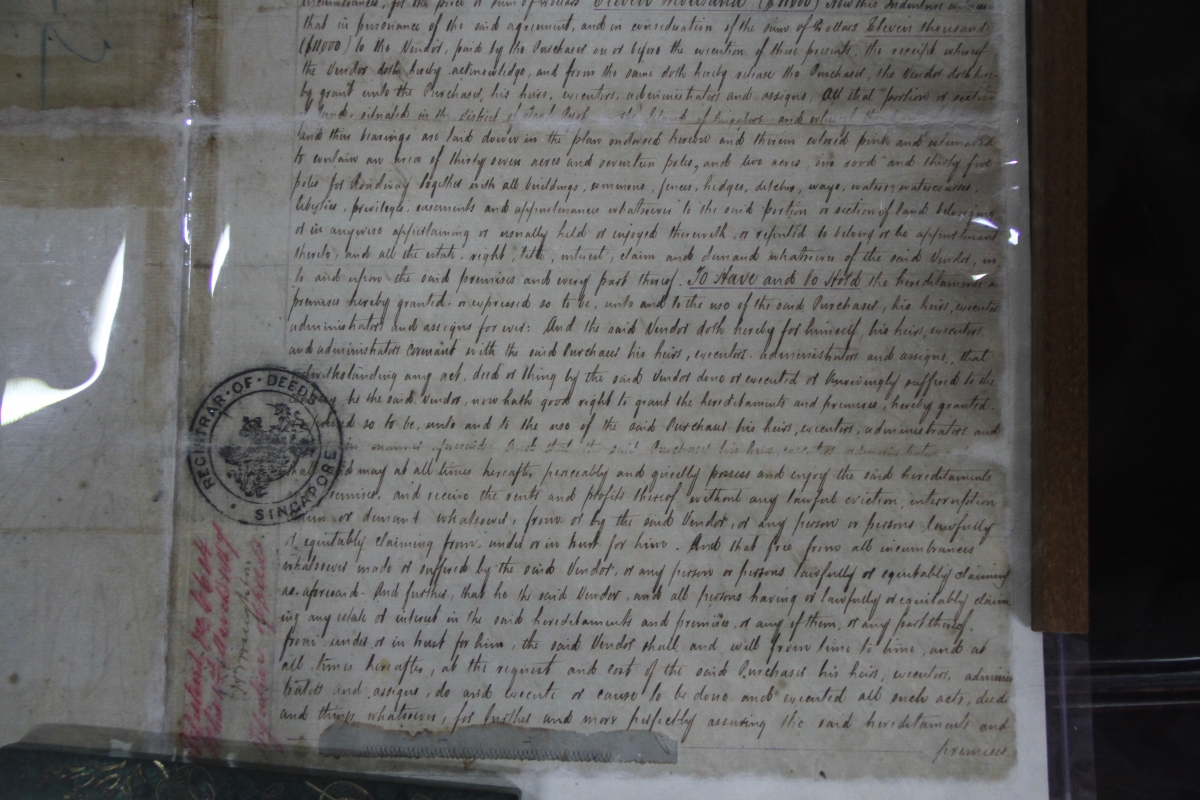 for the price or sum of Dollars Eleven thousand ($11000) Now this Indenture
that in pursuance of the said agreement, and in consideration of the sum of Dollars Eleven thousand
($11000) to the Vendor, paid by the Purchaser on or before the execution of these presents, the receipt whereof
the Vendor doth hereby acknowledge, and from the same doth hereby release the Purchaser, the Vendor doth here-
by grant unto the Purchaser, his heirs, executors, administrators and assigns, All that portion or section
land, situated in the District of and
land thus bearings are laid down in the plan endorsed hereon and therein colored pink and estimated
to contain an area of thirty seven acres and seventeen poles, and two acres, one rood and thirty five
poles for Roadway together with all buildings, commons, fences, hedges, ditches, ways, waters, watercourses,
liberties, privileges, easements and appurtenances whatsoever to the said portion or section of land belonging
or in anywise appertaining or usually held or enjoyed therewith, or reputed to belong or be appurtenant
thereto, and all the estate, right, title, interest, claim and demand whatsoever of the said Vendor, in,
to and upon the said premises and every part thereof. To Have and to Hold the hereditaments &
premises hereby granted, or expressed so to be, unto and to the use of the said Purchaser, his heirs, executors
administrators and assigns for ever: And the said Vendor doth hereby for himself, his heirs, executors,
and administrators covenant with the said Purchaser his heirs, executors, administrators and assigns, that
notwithstanding any act, deed or thing by the said Vendor done or executed or knowingly suffered to the
he the said Vendor, now hath good right to grant the hereditaments and premises, hereby granted
so to be, unto and to the use of the said Purchaser his heirs, executors, administrators and
in manner aforesaid. And that the said Purchaser his heirs, executors, administrators
may at all times hereafter peaceably and quietly possess and enjoy the said hereditaments
and receive the rents and profits thereof without any lawful eviction, interruption
or demand whatsoever, from or by the said Vendor, or any person or persons lawfully
equitably claiming from, under or in trust for him. And that free from all incumbrances
whatsoever made or suffered by the said Vendor, or any person or persons lawfully or equitably claiming
as aforesaid. And further, that he the said Vendor, and all persons having or lawfully or equitably claim
ing any estate or interest in the said hereditaments and premises, or any of them, or any part thereof,
from under or in trust for him, the said Vendor shall and will from time to time, and at
all times hereafter, at the request and cost of the said Purchaser his heirs, executors, adminis
trators and assigns, do and execute or cause to be done and executed all such acts, deeds
and things whatsoever, for further and more perfectly assuring the said hereditaments and
premises
REGISTRAR·OF·DEEDS
SINGAPORE